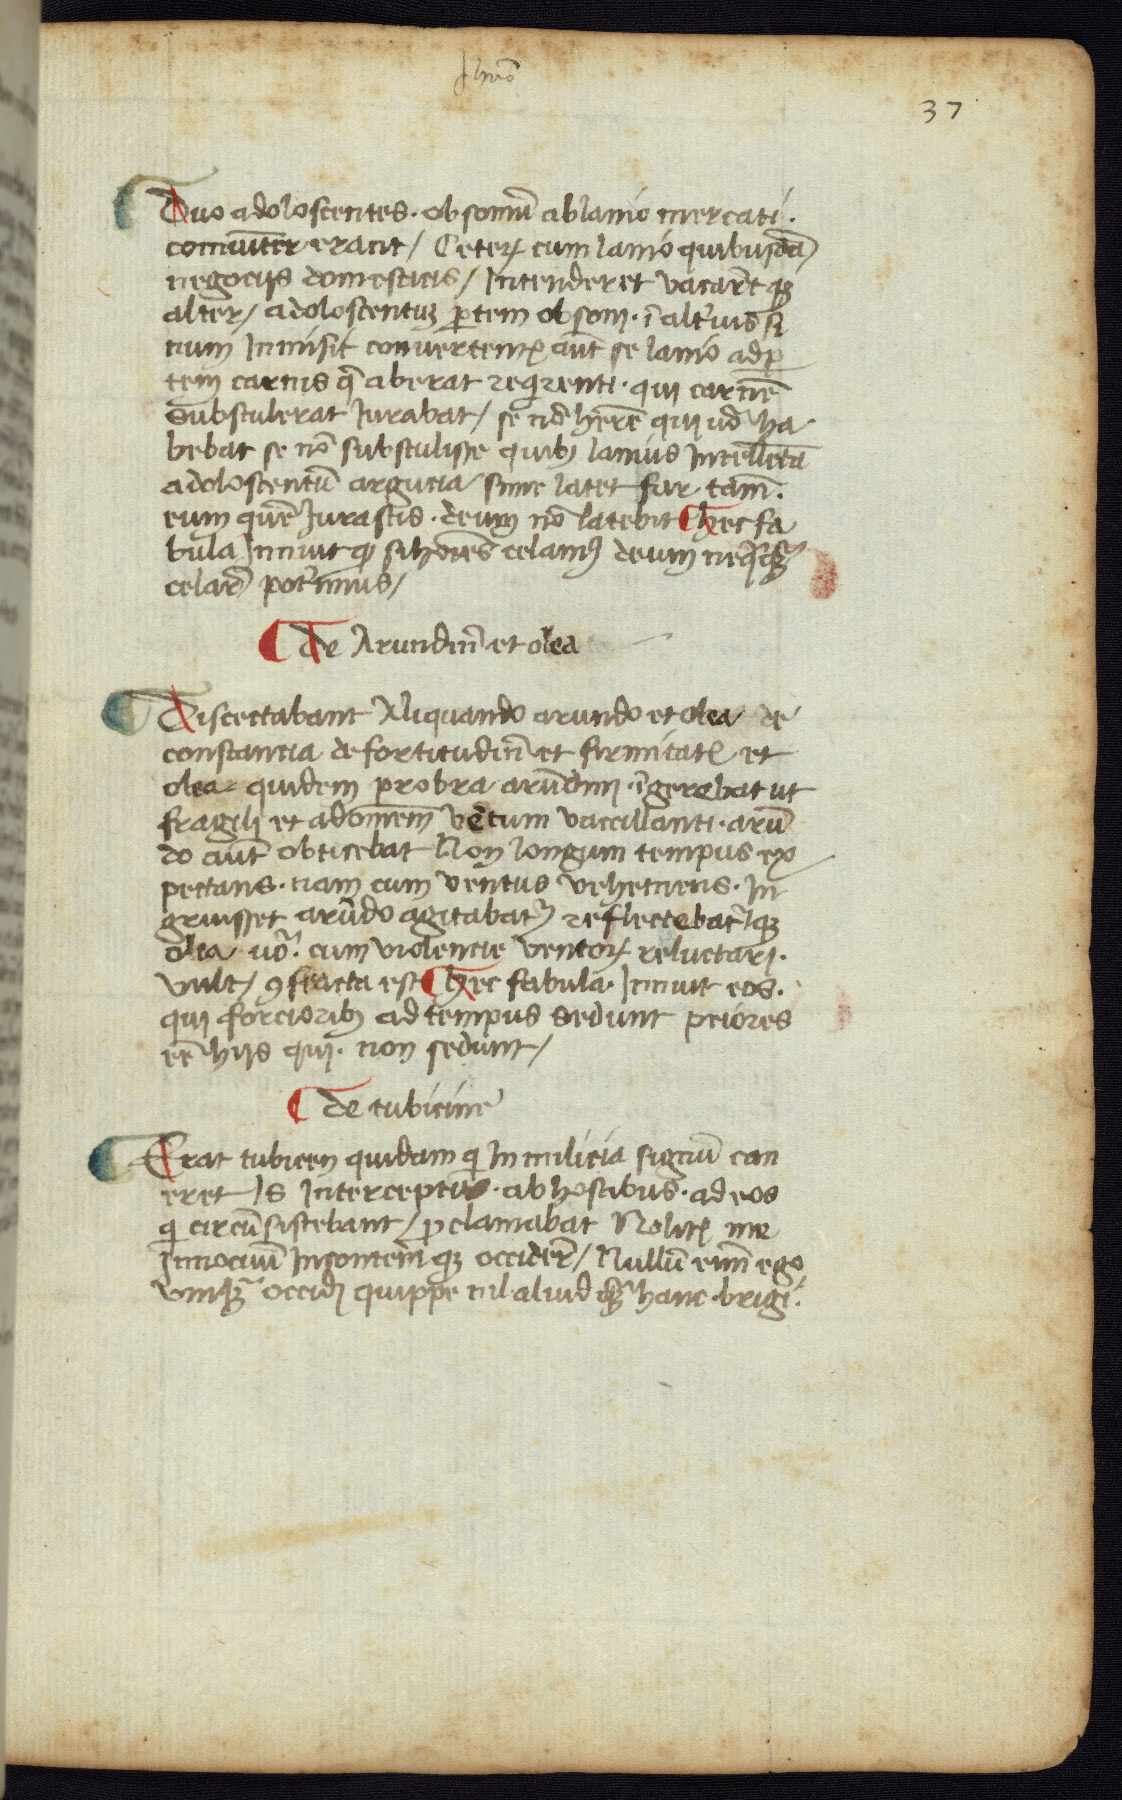 37
Duo adoloscentes · obsoniū ab lanio mercati ·
comuniter erant / Ceterꝝ cum lanio quibusdā
negocijs domesticis / Intenderet vacarēt qꝫ
alter / adoloscentuꝫ ꝑtem obsonij · ī alterius si
num Inmisit convertenti aūt se lanio ad ꝑ
tem carnis q̄ aberat reqͥrenti · quj carnē
Substulerat Iurabat / se nō hēre quj uō ha
bebat se nō substulisse quibꝫ lanius Intellecta
adoloscentū argucia sime latet fur tam̄ ·
eum quē Iurastis · deum nō latebit Hec fa
bula Innuit ꝙ si hoīes celamꝰ deum neqͣꝗ̄
celare poterimus /
De Arundinē et olea
Discectabant Aliquando arundo et olea de
constancia de fortitudinē et firmitate et
olea quidem probra arūdinj · īgerebat ut
fragilj et ad omnem vētum vaccillanti · arū
do aūt obticebat Non longum tempus ex
pectans · nam cum ventus vehemens · In
gruisset arūdo agitabatᷣ reflectebatᷣqꝫ
olea uō · cum violencie ventorꝝ reluctarj ·
vult / ꝯfracta est Hec fabula · Innuit eos ·
quj forcioribꝫ ad tempus sedunt pciores
eē hijs quj · non sedunt /
De tubicine
Erat tubicen quidam qͥ In milicia signū can
eret Is Interceptus · ab hostibus · ad eos
qͥ circūsistebant / ꝓclamabat Nolite me
Innocuū Insontem qꝫ occidere / Nullū enim ego
vmqͣꝫ occidj quippe nil aliud qͣꝫ hanc · brigi ·